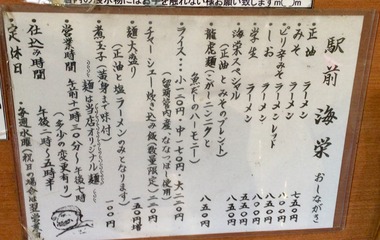 駅前 海栄 おしながき
・正油 ラーメン 七五〇円
・みそ ラーメン
・ピリ辛みそラーメンレッド
・しお ラーメン 八〇〇円
・学生 ラーメン
・海栄スペシャル
(正油とみそのブレンド) 八五〇円
・龍虎麺(こがーニンニクと
魚だしのハーモニー) 八五〇円
・ライス…小一二〇円・中一七〇円・大二二〇円
産、ななつぼし使用)
・チャーシュー炊き込み飯(数量限定)二二〇円
・麺大盛り 五〇円増
(正油と塩ラーメンのみとなります)
麺は当店オリジナル麺
・煮玉子(黄身まで味付) 一〇〇円
・営業時間 午前十一時三〇分〜午後七時
(多少の変更有り)
・仕込み時間 午後二時〜五時半
・定休日 ・毎週水曜(祝日の場合は翌営業